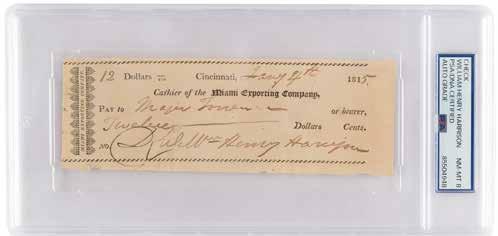 12 Dollars Cincinnati, Jany 4th 1815.
Cashier of the Miami Exporting Company,
PAY to Major or bearer,
Twelve Dollars Cents.
NO. Wm Henry Harrison
MIAMI EXPORTING COMPANY.
CHECK
WILLIAM HENRY HARRISON
PSA/DNA CERTIFIED
AUTO GRADE
NM-MT 8
85504948